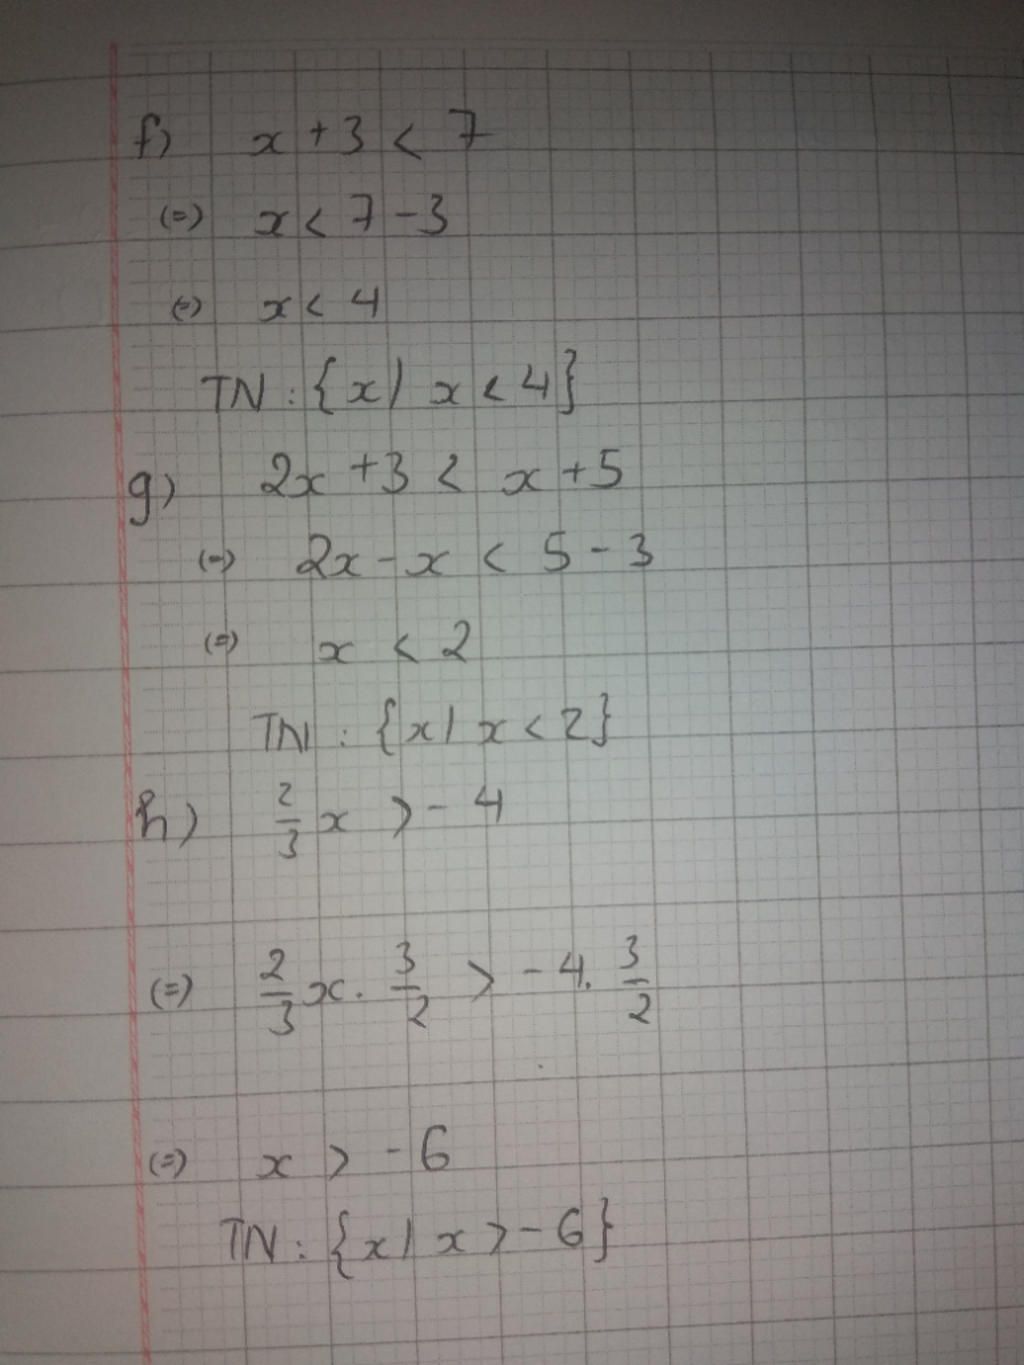 f) x + 3 < 7
(=) x < 7 - 3
(=) x < 4
TN : {x | x < 4}
g) 2x + 3 < x + 5
(=) 2x - x < 5 - 3
(=) x < 2
TN : {x | x < 2}
h) 2/3 x > - 4
(=) 2/3 x . 3/2 > - 4 . 3/2
(=) x > - 6
TN : {x | x > - 6}